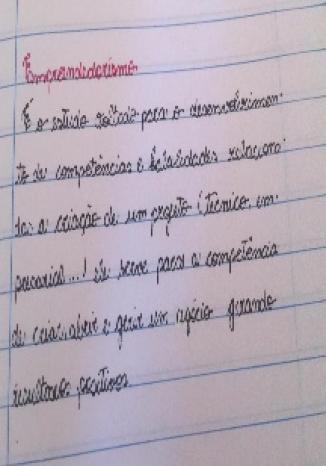 Empreendedorismo
É o estudo voltado para o desenvolvimen-
to de competências e habilidades relaciona-
das a criação de um projeto (técnico, em-
presarial...) ele serve para a competência
de criar, abrir e gerir um négocio gerando
resultados positivos